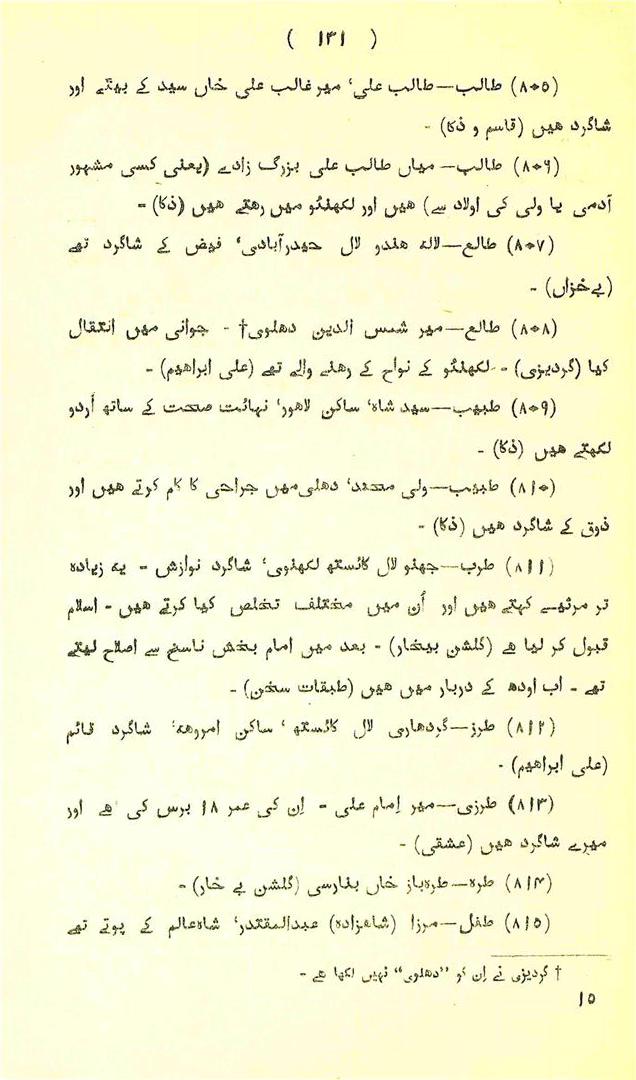 ( ۱۳۱ )
(۸۰۵) طالب—طالب علی، میر غالب علی خاں سید کے بیٹے اور
شاگرد ھیں (قاسم و ذکا) -
(۸۰۶) طالب— میاں طالب علی بزرگ زادے (یعنی کسی مشہور
آدمی یا ولی کی اولاد سے) ھیں اور لکھنئو میں رھتے ھیں (ذکا) -
(۸۰۷) طالع—لالہ ھندو لال حیدرآبادی، فیض کے شاگرد تھے
(بےخزاں) -
(۸۰۸) طالع—میر شمس الدین دھلوی† - جوانی میں انتقال
کیا (گردیزی) - لکھنئو کے نواح کے رھنے والے تھے (علی ابراھیم) -
(۸۰۹) طبیب—سید شاہ، ساکن لاھور، نہائت صحت کے ساتھ اُردو
لکھتے ھیں (ذکا) -
(۸۱۰) طبیب—ولی محمد، دھلی میں جراحی کا کام کرتے ھیں اور
ذوق کے شاگرد ھیں (ذکا) -
(۸۱۱) طرب—جھنو لال کائستھ لکھنوی، شاگرد نوازش - یہ زیادہ
تر مرثیے کہتے ھیں اور اُن میں مختلف تخلص کیا کرتے ھیں - اسلام
قبول کر لیا ھے (گلشن بیخار) - بعد میں امام بخش ناسخ سے اصلاح لیتے
تھے - اب اودھ کے دربار میں ھیں (طبقات سخن) -
(۸۱۲) طرز—گردھاری لال کائستھ، ساکن امروھہ، شاگرد قائم
(علی ابراھیم) -
(۸۱۳) طرزی—میر اِمام علی - اِن کی عمر ۱۸ برس کی ھے اور
میرے شاگرد ھیں (عشقی) -
(۸۱۴) طرہ—طرہباز خاں بنارسی (گلشن بے خار) -
(۸۱۵) طفل—مرزا (شاھزادہ) عبدالمقتدر، شاہعالم کے پوتے تھے
† گردیزی نے اِن کو ”دھلوی“ نہیں لکھا ھے -
۱۵